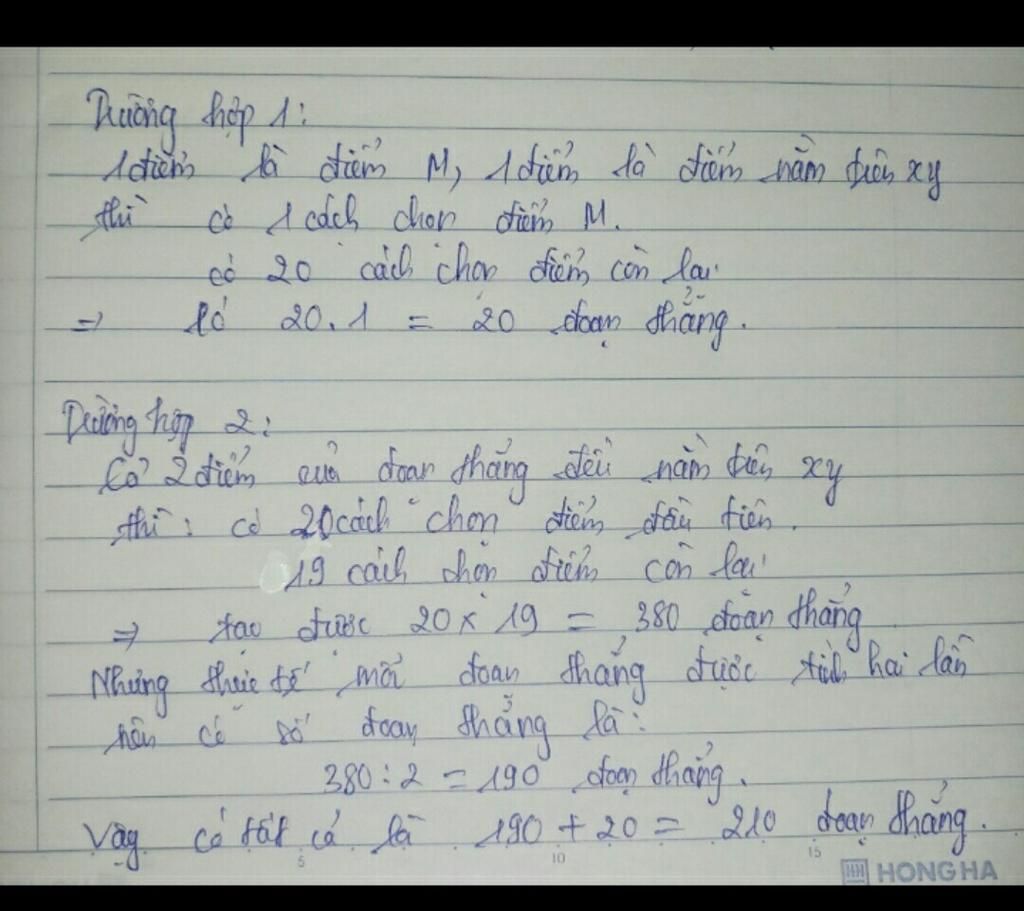 Trường hợp 1:
1 điểm là điểm M, 1 điểm là điểm nằm trên xy
thì có 1 cách chọn điểm M.
có 20 cách chọn điểm còn lại
=> Có 20.1 = 20 đoạn thẳng.
Trường hợp 2:
Cả 2 điểm của đoạn thẳng đều nằm trên xy
thì: có 20 cách chọn điểm đầu tiên.
19 cách chọn điểm còn lại
=> tạo được 20 x 19 = 380 đoạn thẳng
Nhưng thực tế mỗi đoạn thẳng được tính hai lần
nên có số đoạn thẳng là:
380 : 2 = 190 đoạn thẳng.
Vậy có tất cả là 190 + 20 = 210 đoạn thẳng.
5 10 15
HONG HA